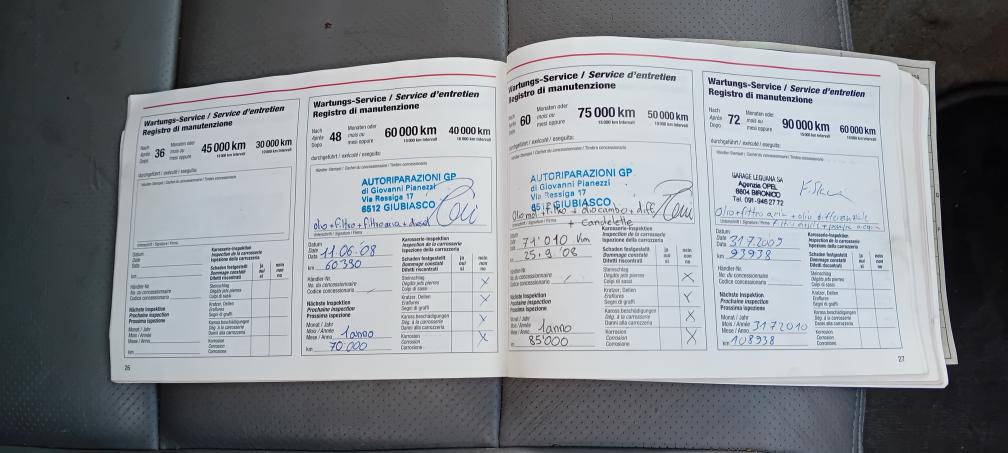 Wartungs-Service / Service d'entretien
Registro di manutenzione
Nach
Après
Dopo
36
Monaten oder
mois ou
mesi oppure
45 000 km
30 000 km
durchgeführt / exécuté / eseguita:
Händler-Stempel / Cachet du concessionnaire / Timbro concessionario
Unterschrift / Signature / Firma
Datum
Date
Data
km
Karosserie-Inspektion
Inspection de la carrosserie
Ispezione della carrozzeria
Schaden festgestellt
Dommage constaté
Difetti riscontrati
ja
oui
si
nein
non
no
Händler-Nr.
No. du concessionnaire
Codice concessionario
Steinschlag
Dégâts par pierres
Colpi di sassi
Kratzer, Dellen
Eraflures
Segni di graffi
Nächste Inspektion
Prochaine inspection
Prossima ispezione
Karosseriebeschädigungen
Dég. à la carrosserie
Danni alla carrozzeria
Monat / Jahr
Mois / Année
Mese / Anno
Korrosion
Corrosion
Corrosione
km
26
Wartungs-Service / Service d'entretien
Registro di manutenzione
Nach
Après
Dopo
48
Monaten oder
mois ou
mesi oppure
60 000 km
40 000 km
durchgeführt / exécuté / eseguita:
Händler-Stempel / Cachet du concessionnaire / Timbro concessionario
AUTORIPARAZIONI GP
di Giovanni Pianezzi
Via Ressiga 17
6512 GIUBIASCO
olio + filtro + filtro aria +
Unterschrift / Signature / Firma
Datum
Date
Data
11.06.08
km 60330
Karosserie-Inspektion
Inspection de la carrosserie
Ispezione della carrozzeria
Schaden festgestellt
Dommage constaté
Difetti riscontrati
ja
oui
si
nein
non
no
Händler-Nr.
No. du concessionnaire
Codice concessionario
Steinschlag
Dégâts par pierres
Colpi di sassi
X
Kratzer, Dellen
Eraflures
Segni di graffi
X
Nächste Inspektion
Prochaine inspection
Prossima ispezione
Karosseriebeschädigungen
Dég. à la carrosserie
Danni alla carrozzeria
X
Monat / Jahr
Mois / Année
Mese / Anno
1 anno
Korrosion
Corrosion
Corrosione
X
km 70 000
Wartungs-Service / Service d'entretien
Registro di manutenzione
Nach
Après
Dopo
60
Monaten oder
mois ou
mesi oppure
75 000 km
50 000 km
durchgeführt / exécuté / eseguita:
Händler-Stempel / Cachet du concessionnaire / Timbro concessionario
AUTORIPARAZIONI GP
di Giovanni Pianezzi
Via Ressiga 17
6512 GIUBIASCO
Olio mot + filtro + olio cambo + diff
+ candelette
71'010 km
25.9'08
Karosserie-Inspektion
Inspection de la carrosserie
Ispezione della carrozzeria
Schaden festgestellt
Dommage constaté
Difetti riscontrati
ja
oui
si
nein
non
no
Händler-Nr.
No. du concessionnaire
Codice concessionario
Steinschlag
Dégâts par pierres
Colpi di sassi
X
Kratzer, Dellen
Eraflures
Segni di graffi
X
Nächste Inspektion
Prochaine inspection
Prossima ispezione
Karosseriebeschädigungen
Dég. à la carrosserie
Danni alla carrozzeria
X
Monat / Jahr
Mois / Année
Mese / Anno
1 anno
Korrosion
Corrosion
Corrosione
X
km 85'000
Wartungs-Service / Service d'entretien
Registro di manutenzione
Nach
Après
Dopo
72
Monaten oder
mois ou
mesi oppure
90 000 km
60 000 km
durchgeführt / exécuté / eseguita:
Händler-Stempel / Cachet du concessionnaire / Timbro concessionario
GARAGE LEGUANA SA
Agenzia OPEL
6804 BIRONICO
Tel. 091-946 27 72
olio + filtro aria + olio differenziale
Unterschrift / Signature / Firma
Datum
Date
Data
31 7 2009
km 93938
Karosserie-Inspektion
Inspection de la carrosserie
Ispezione della carrozzeria
Schaden festgestellt
Dommage constaté
Difetti riscontrati
ja
oui
si
nein
non
no
Händler-Nr.
No. du concessionnaire
Codice concessionario
Steinschlag
Dégâts par pierres
Colpi di sassi
Kratzer, Dellen
Eraflures
Segni di graffi
Nächste Inspektion
Prochaine inspection
Prossima ispezione
Karosseriebeschädigungen
Dég. à la carrosserie
Danni alla carrozzeria
Monat / Jahr
Mois / Année
Mese / Anno
31 7 2010
Korrosion
Corrosion
Corrosione
km 108938
27